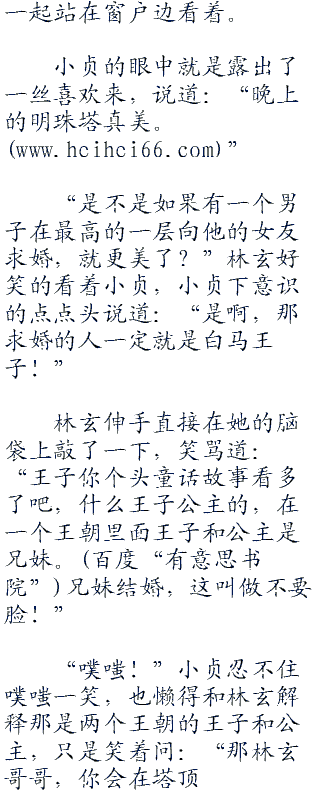 一起站在窗户边看着。
小贞的眼中就是露出了
一丝喜欢来，说道：“晚上
的明珠塔真美。
(www.hcihci66.com)”
“是不是如果有一个男
子在最高的一层向他的女友
求婚，就更美了？”林玄好
笑的看着小贞，小贞下意识
的点点头说道：“是啊，那
求婚的人一定就是白马王
子！”
林玄伸手直接在她的脑
袋上敲了一下，笑骂道：
“王子你个头童话故事看多
了吧，什么王子公主的，在
一个王朝里面王子和公主是
兄妹。(百度“有意思书
院”)兄妹结婚，这叫做不要
脸！”
“噗嗤！”小贞忍不住
噗嗤一笑，也懒得和林玄解
释那是两个王朝的王子和公
主，只是笑着问：“那林玄
哥哥，你会在塔顶